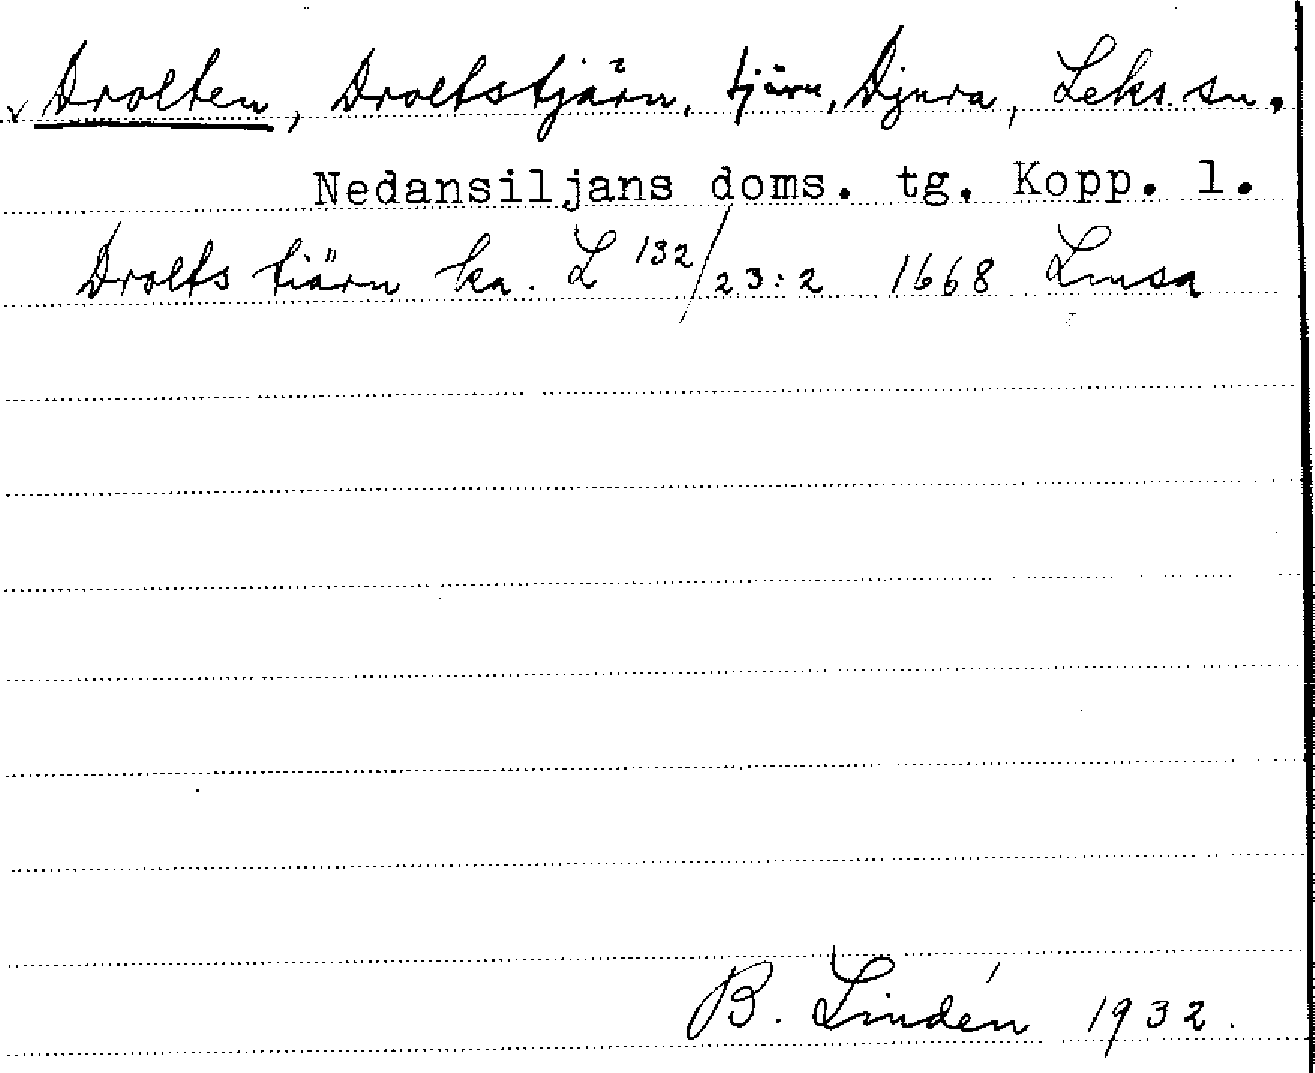 Drolten, Droltstjärn, tjärn, Djura, Leks. sn.
Nedansiljans doms. tg. Kopp. l.
Drolts tiärn ka. L 132/23:2 1668 Lmsa
B. Lindén 1932.